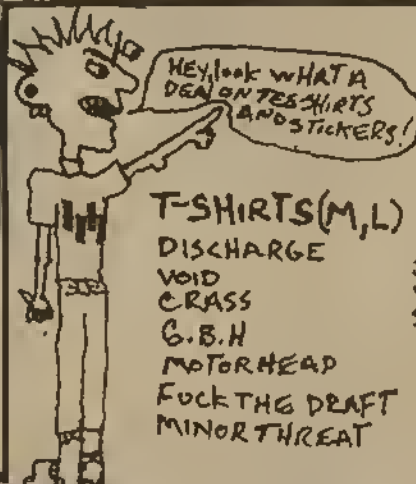 HEY, look WHAT A
DEAL ON TEESHIRTS
AND STICKERS!
T-SHIRTS(M,L)
DISCHARGE
VOID
CRASS
G.B.H
MOTORHEAD
FUCK THE DRAFT
MINOR THREAT